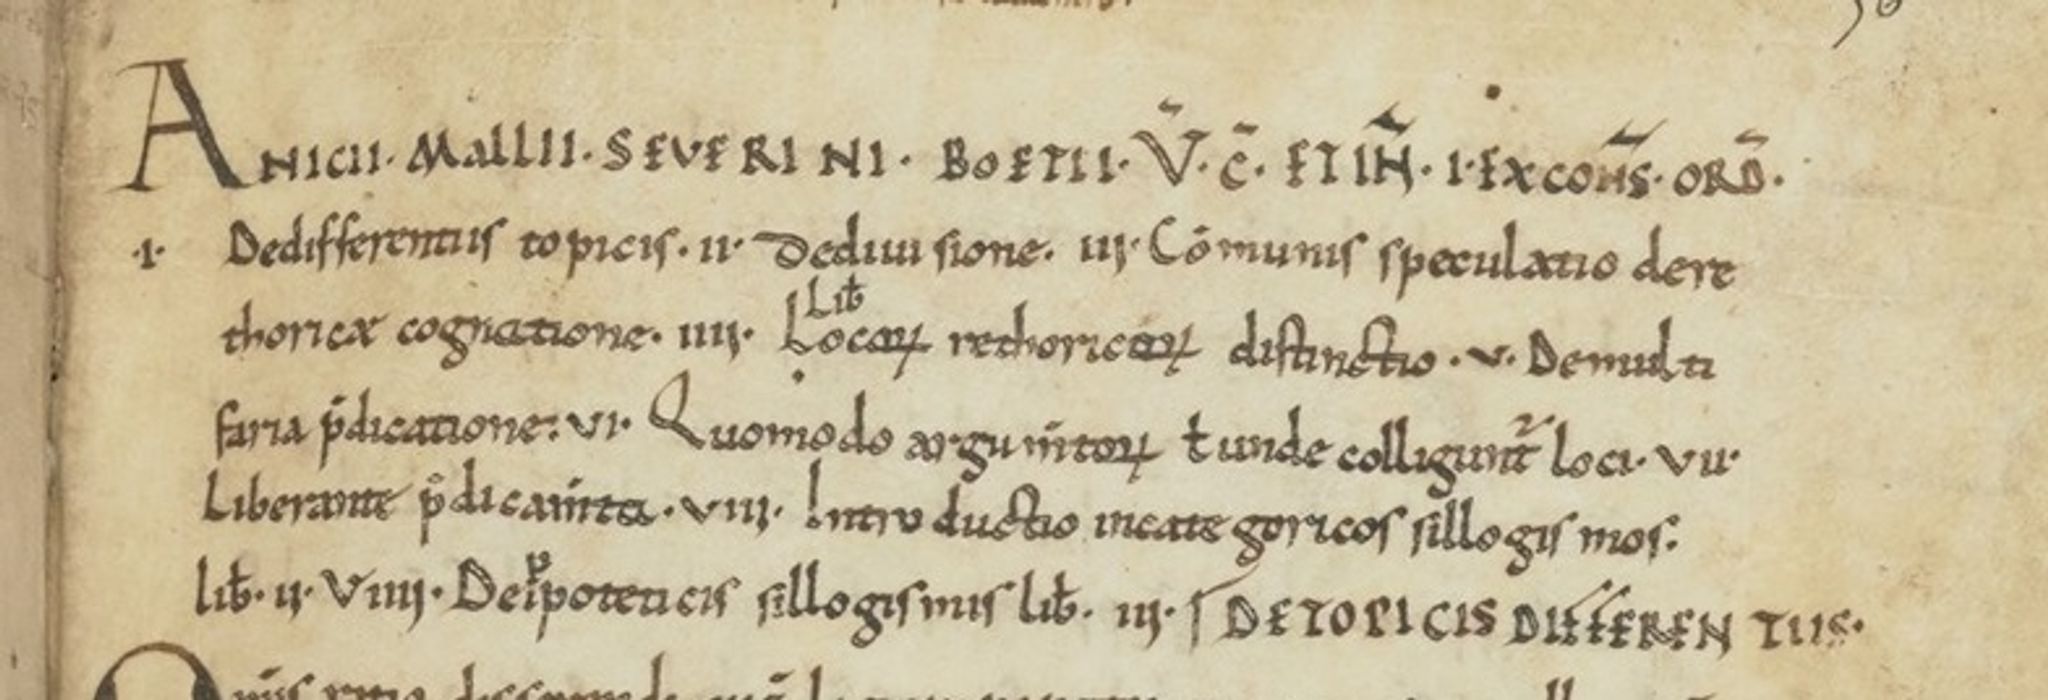 ANICII · MALLII · SEVERINI · BOETII · V̄ · C̄ · ET IN̄ · I · EXCON̄S · ORD̄ ·
· I · Dedifferentiis topicis · II · Dediuisione · III · Cōmunis speculatio dere
thoricæ cognatione · IIII · Locoꝝ rethoricoꝝ distinctio · V · Demulti
Lib̄
faria p̄dicatione : VI · Quomodo argum̄toꝝ ł unde colligunt᷑ loci · VII ·
Liberante p̄dicam̄ta · VIII · Introductio incategoricos sillogismos :
lib̄ · II · VIIII · Deipoteticis sillogismis lib̄ · III · DETOPICIS DIFFERENTIIS ·